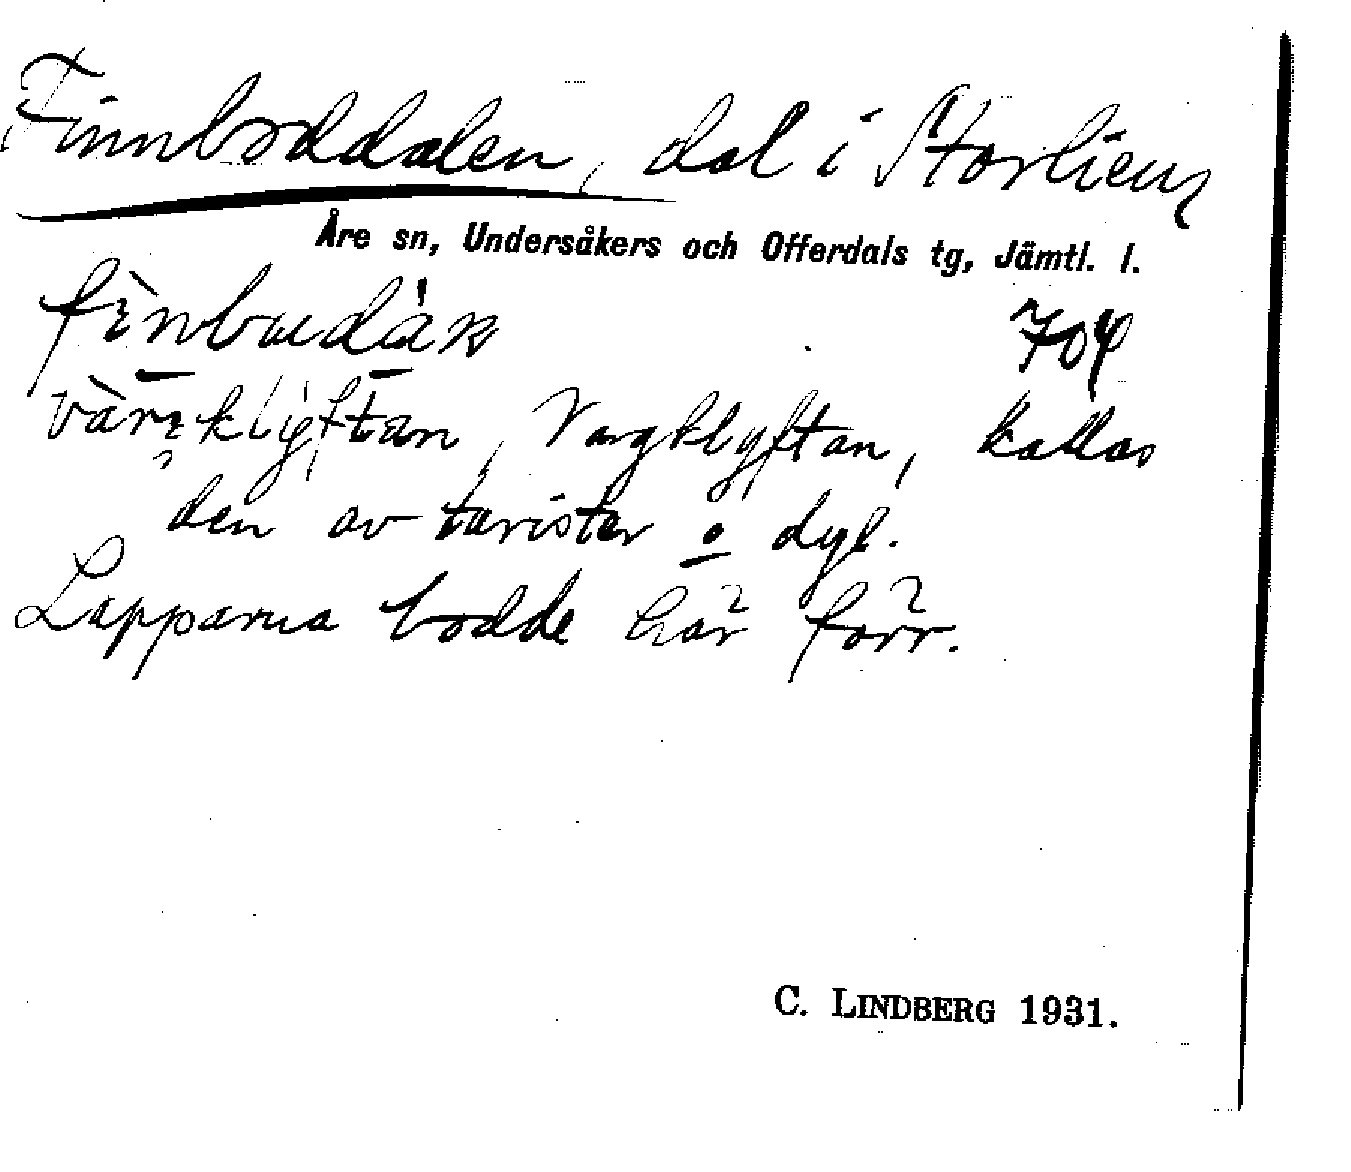 Finnboddalen, dal i Storlien
Åre sn, Undersåkers och Offerdals tg, Jämtl. l.
704
Vargklyftan, kallas
den av turister o dyl.
Lapparna bodde här förr.
C. LINDBERG 1931.